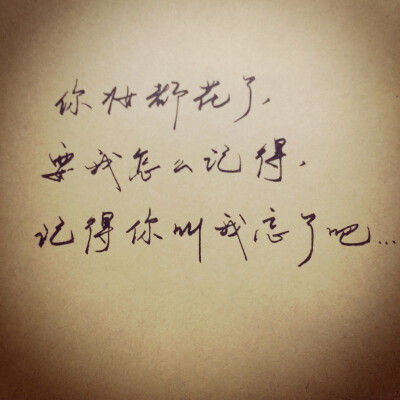 你妆都花了,
要我怎么记得,
记得你叫我忘了吧...